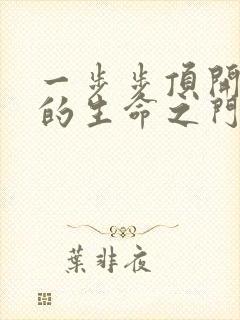 一步步頂開
的生命之門
葉非夜